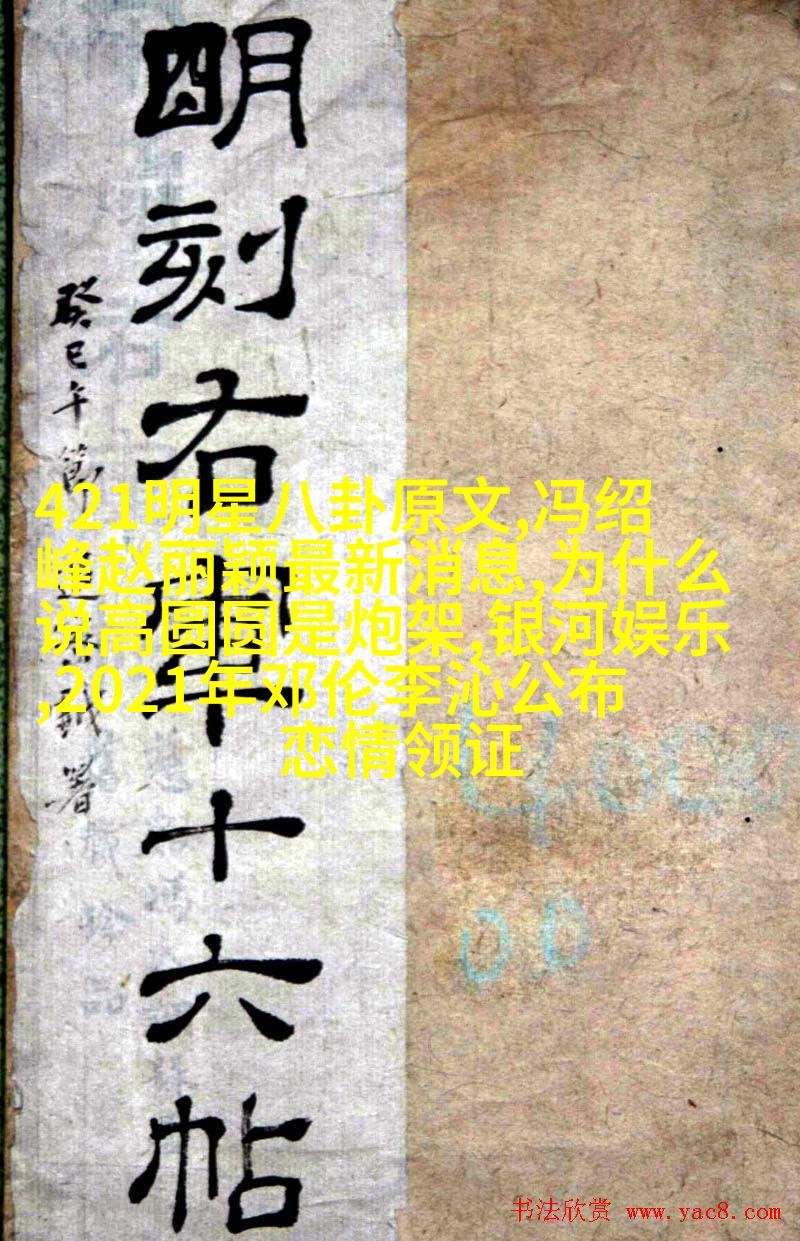 明刻右軍十六帖
癸巳午節
署
421明星八卦原文,冯绍
峰赵丽颖最新消息,为什么
说高圆圆是炮架,银河娱乐
,2021年邓伦李沁公布
恋情领证
00
书法欣赏 www.yac8.com